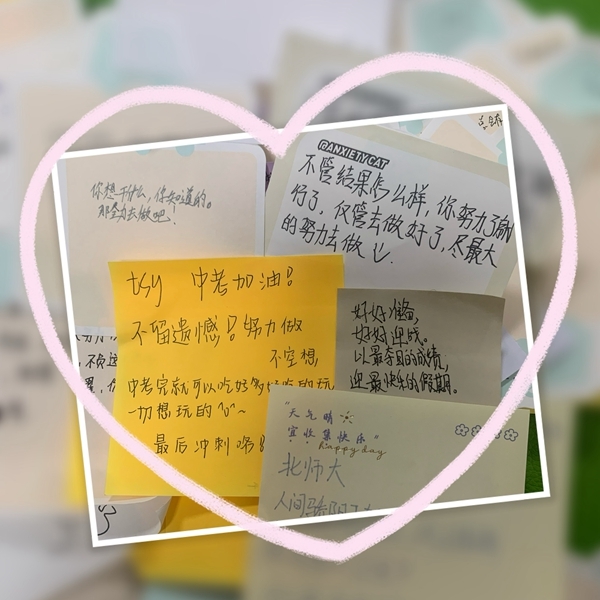 你想干什么，你知道的。
那努力去做吧！
@ANXIETYCAT
不管结果怎么样，你努力了就
行了，仅管去做好了，尽最大
的努力去做
tsy 中考加油！
不留遗憾！努力做
不空想，
中考完就可以吃好多好吃的玩
一切想玩的
最后冲刺咯！
好好准备，
好好迎战。
以最夺目的成绩，
迎最快乐的假期。
"天气晴
宜收集快乐"
happy day
北师大
人间骄阳